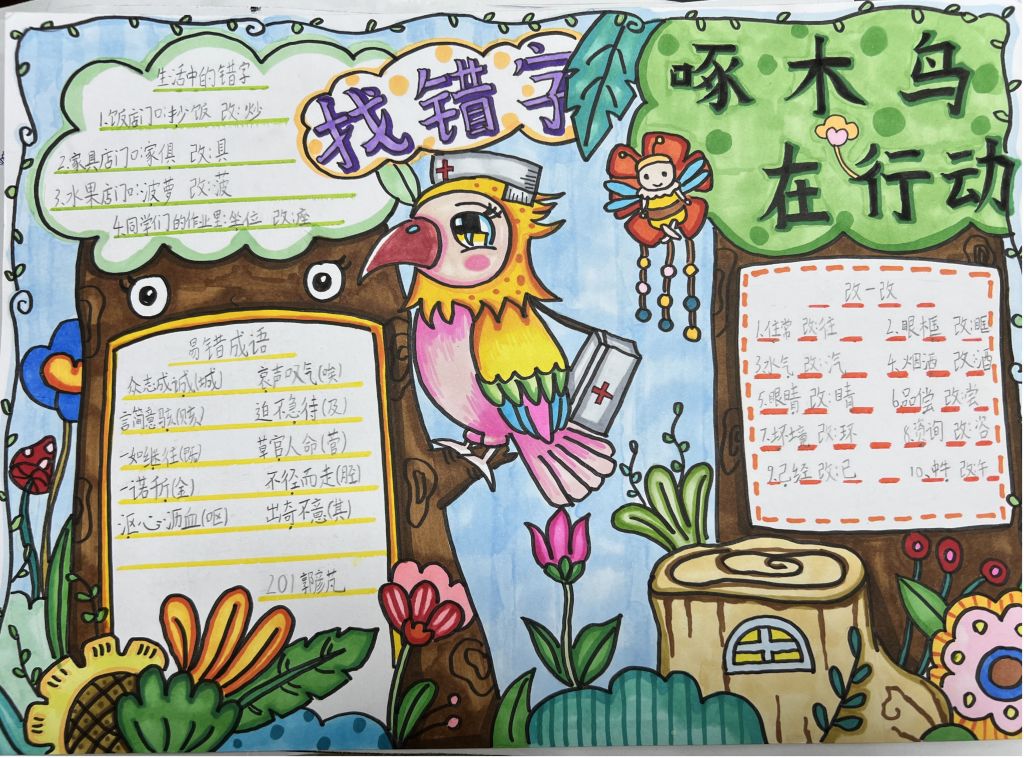 找错字
啄木鸟
在行动
生活中的错字
1.饭店门口:抄饭 改:炒
2.家具店门口:家俱 改:具
3.水果店门口:波萝 改:菠
4.同学们的作业里:坐位 改:座
易错成语
众志成诚(城) 哀声叹气(唉)
言简意骇(赅) 迫不急待(及)
一如继往(既) 草官人命(菅)
一诺千斤(金) 不径而走(胫)
沤心沥血(呕) 出奇不意(其)
201郭彦芃
改一改
1.住常 改:往 2.眼框 改:眶
3.水气 改:汽 4.烟洒 改:酒
5.眼晴 改:睛 6.品偿 改:尝
7.坏境 改:环 8.资询 改:咨
9.己经 改:已 10. 改:牛